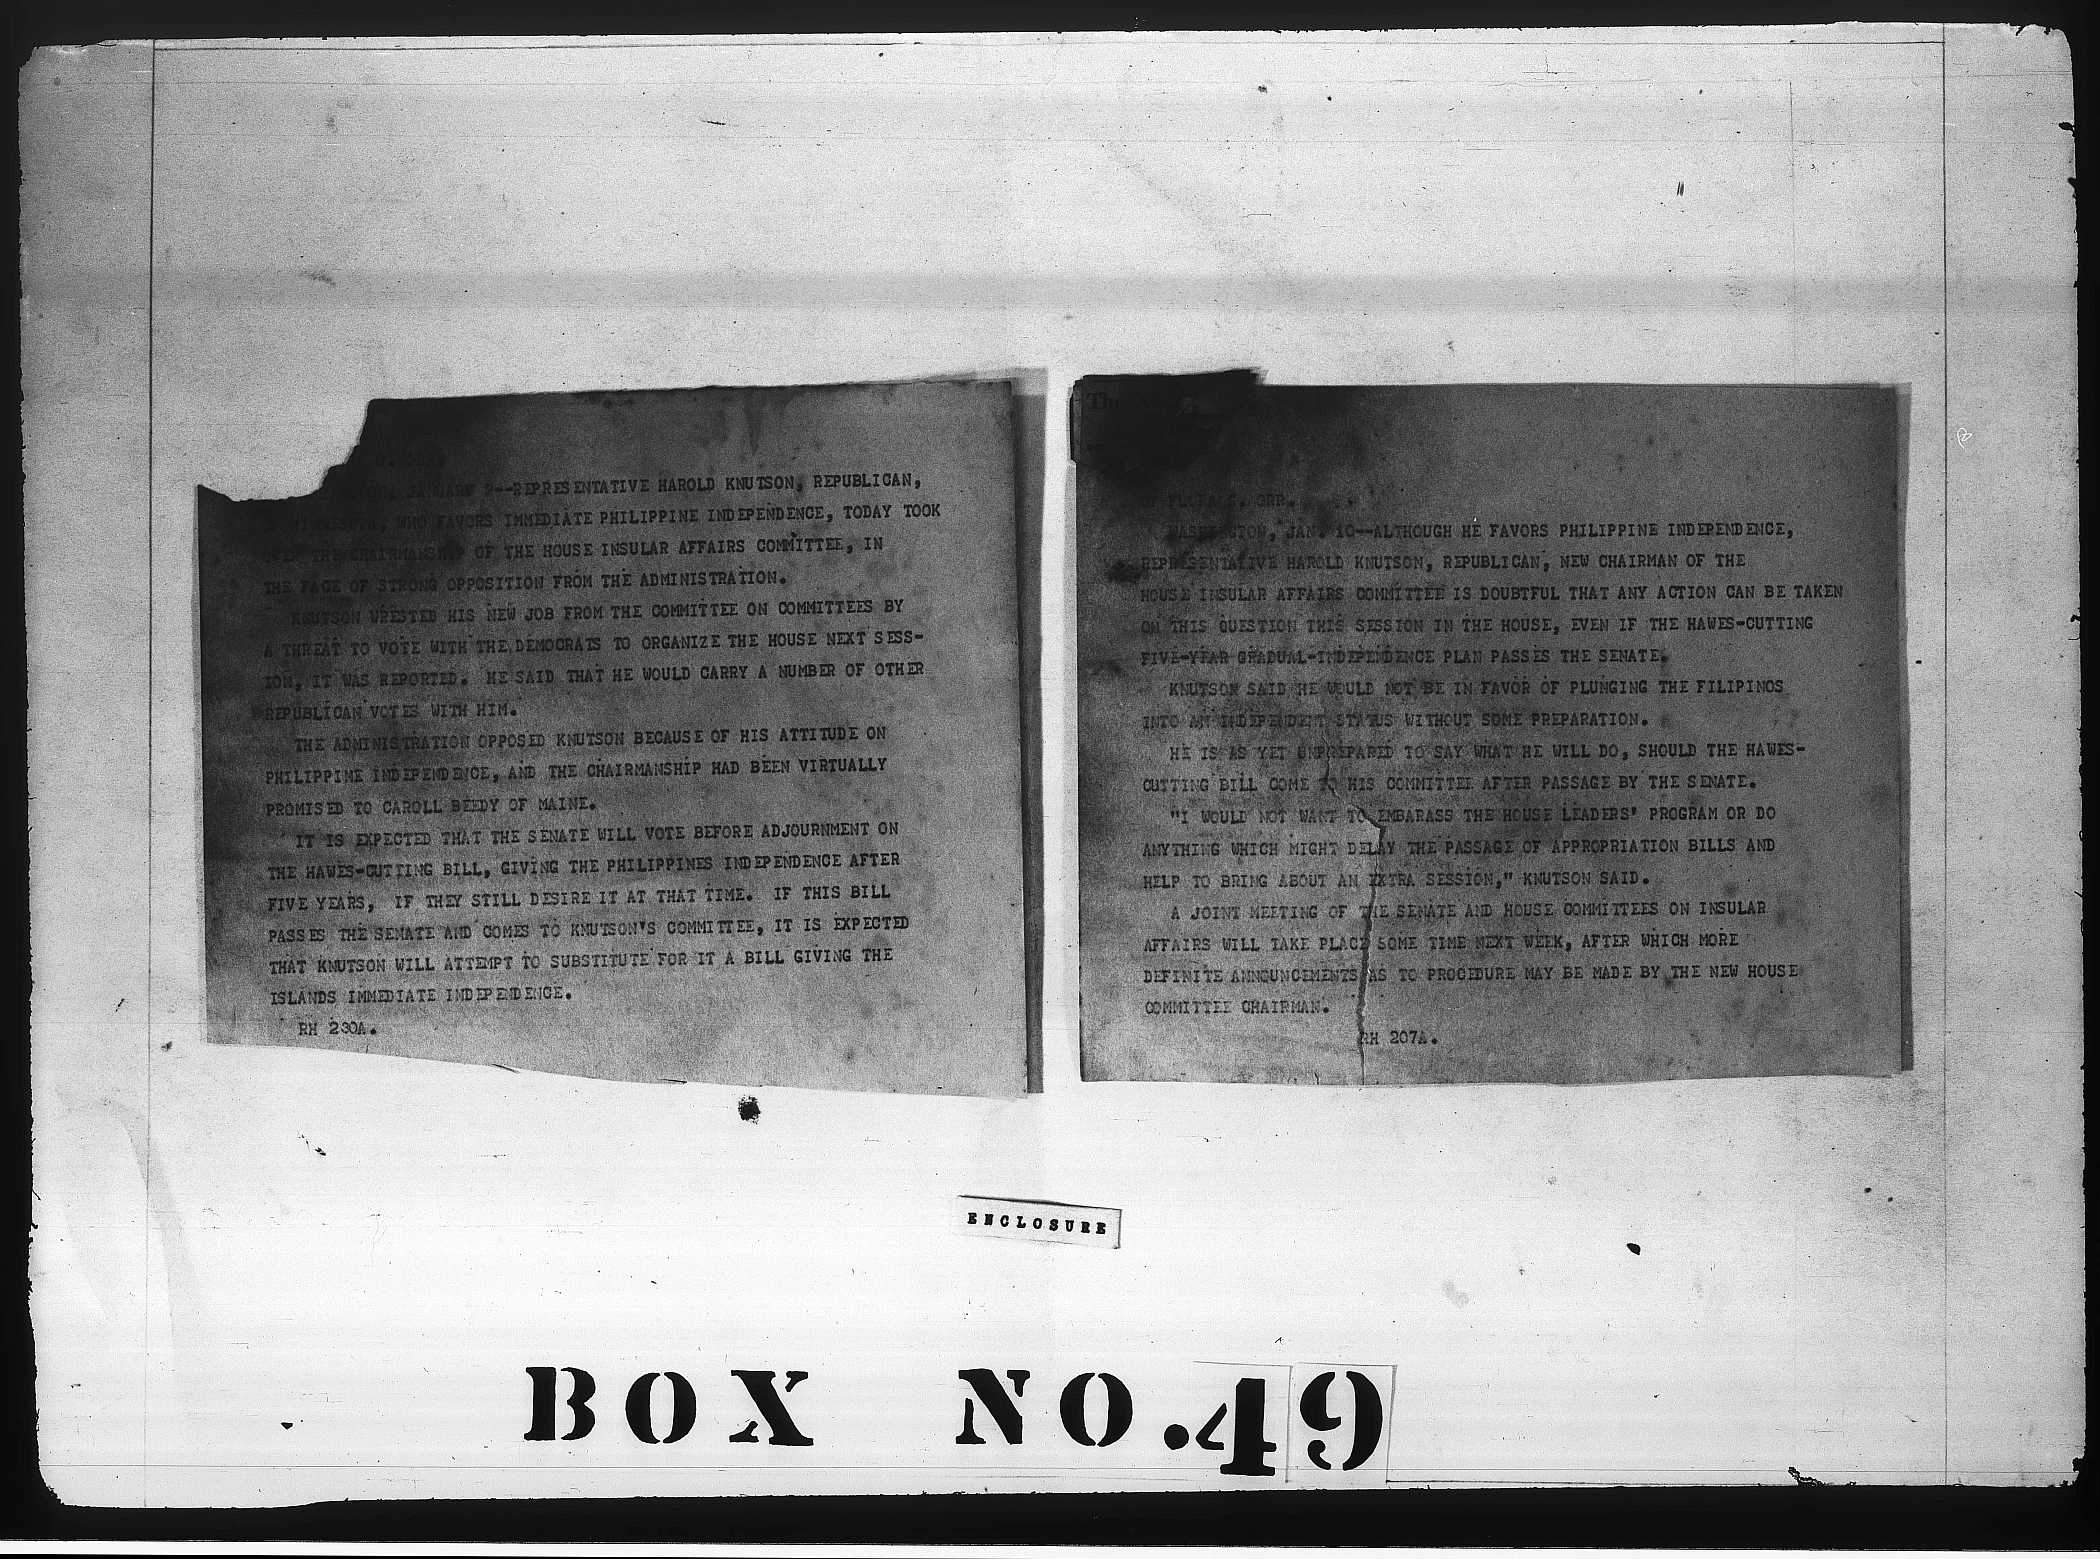 JANUARY 9--REPRESENTATIVE HAROLD KNUTSON, REPUBLICAN,
MINNESOTA, WHO FAVORS IMMEDIATE PHILIPPINE INDEPENDENCE, TODAY TOOK
OVER THE CHAIRMANSHIP OF THE HOUSE INSULAR AFFAIRS COMMITTEE, IN
THE FACE OF STRONG OPPOSITION FROM THE ADMINISTRATION.
KNUTSON WRESTED HIS NEW JOB FROM THE COMMITTEE ON COMMITTEES BY
A THREAT TO VOTE WITH THE DEMOCRATS TO ORGANIZE THE HOUSE NEXT SESS-
ION, IT WAS REPORTED. HE SAID THAT HE WOULD CARRY A NUMBER OF OTHER
REPUBLICAN VOTES WITH HIM.
THE ADMINISTRATION OPPOSED KNUTSON BECAUSE OF HIS ATTITUDE ON
PHILIPPINE INDEPENDENCE, AND THE CHAIRMANSHIP HAD BEEN VIRTUALLY
PROMISED TO CAROLL BEEDY OF MAINE.
IT IS EXPECTED THAT THE SENATE WILL VOTE BEFORE ADJOURNMENT ON
THE HAWES-CUTTING BILL, GIVING THE PHILIPPINES INDEPENDENCE AFTER
FIVE YEARS, IF THEY STILL DESIRE IT AT THAT TIME. IF THIS BILL
PASSES THE SENATE AND COMES TO KNUTSON'S COMMITTEE, IT IS EXPECTED
THAT KNUTSON WILL ATTEMPT TO SUBSTITUTE FOR IT A BILL GIVING THE
ISLANDS IMMEDIATE INDEPENDENCE.
RH 230A.
WASHINGTON, JAN. 10--ALTHOUGH HE FAVORS PHILIPPINE INDEPENDENCE,
REPRESENTATIVE HAROLD KNUTSON, REPUBLICAN, NEW CHAIRMAN OF THE
HOUSE INSULAR AFFAIRS COMMITTEE IS DOUBTFUL THAT ANY ACTION CAN BE TAKEN
ON THIS QUESTION THIS SESSION IN THE HOUSE, EVEN IF THE HAWES-CUTTING
FIVE-YEAR GRADUAL-INDEPENDENCE PLAN PASSES THE SENATE.
KNUTSON SAID HE WOULD NOT BE IN FAVOR OF PLUNGING THE FILIPINOS
INTO AN INDEPENDENT STATUS WITHOUT SOME PREPARATION.
HE IS AS YET UNPREPARED TO SAY WHAT HE WILL DO, SHOULD THE HAWES-
CUTTING BILL COME TO HIS COMMITTEE AFTER PASSAGE BY THE SENATE.
"I WOULD NOT WANT TO EMBARASS THE HOUSE LEADERS' PROGRAM OR DO
ANYTHING WHICH MIGHT DELAY THE PASSAGE OF APPROPRIATION BILLS AND
HELP TO BRING ABOUT AN EXTRA SESSION," KNUTSON SAID.
A JOINT MEETING OF THE SENATE AND HOUSE COMMITTEES ON INSULAR
AFFAIRS WILL TAKE PLACE SOME TIME NEXT WEEK, AFTER WHICH MORE
DEFINITE ANNOUNCEMENTS AS TO PROCEDURE MAY BE MADE BY THE NEW HOUSE
COMMITTEE CHAIRMAN.
RH 207A.
ENCLOSURE
BOX NO. 49